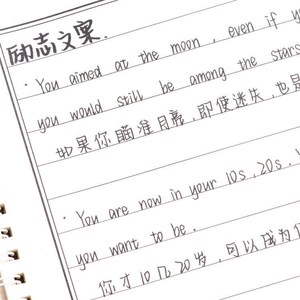 励志文案.
· You aimed at the moon , even if y
you would still be among the stars
如果你瞄准月亮,即使迷失,也是
· You are now in your 10s , 20s .
you want to be .
你才10几20岁,可以成为